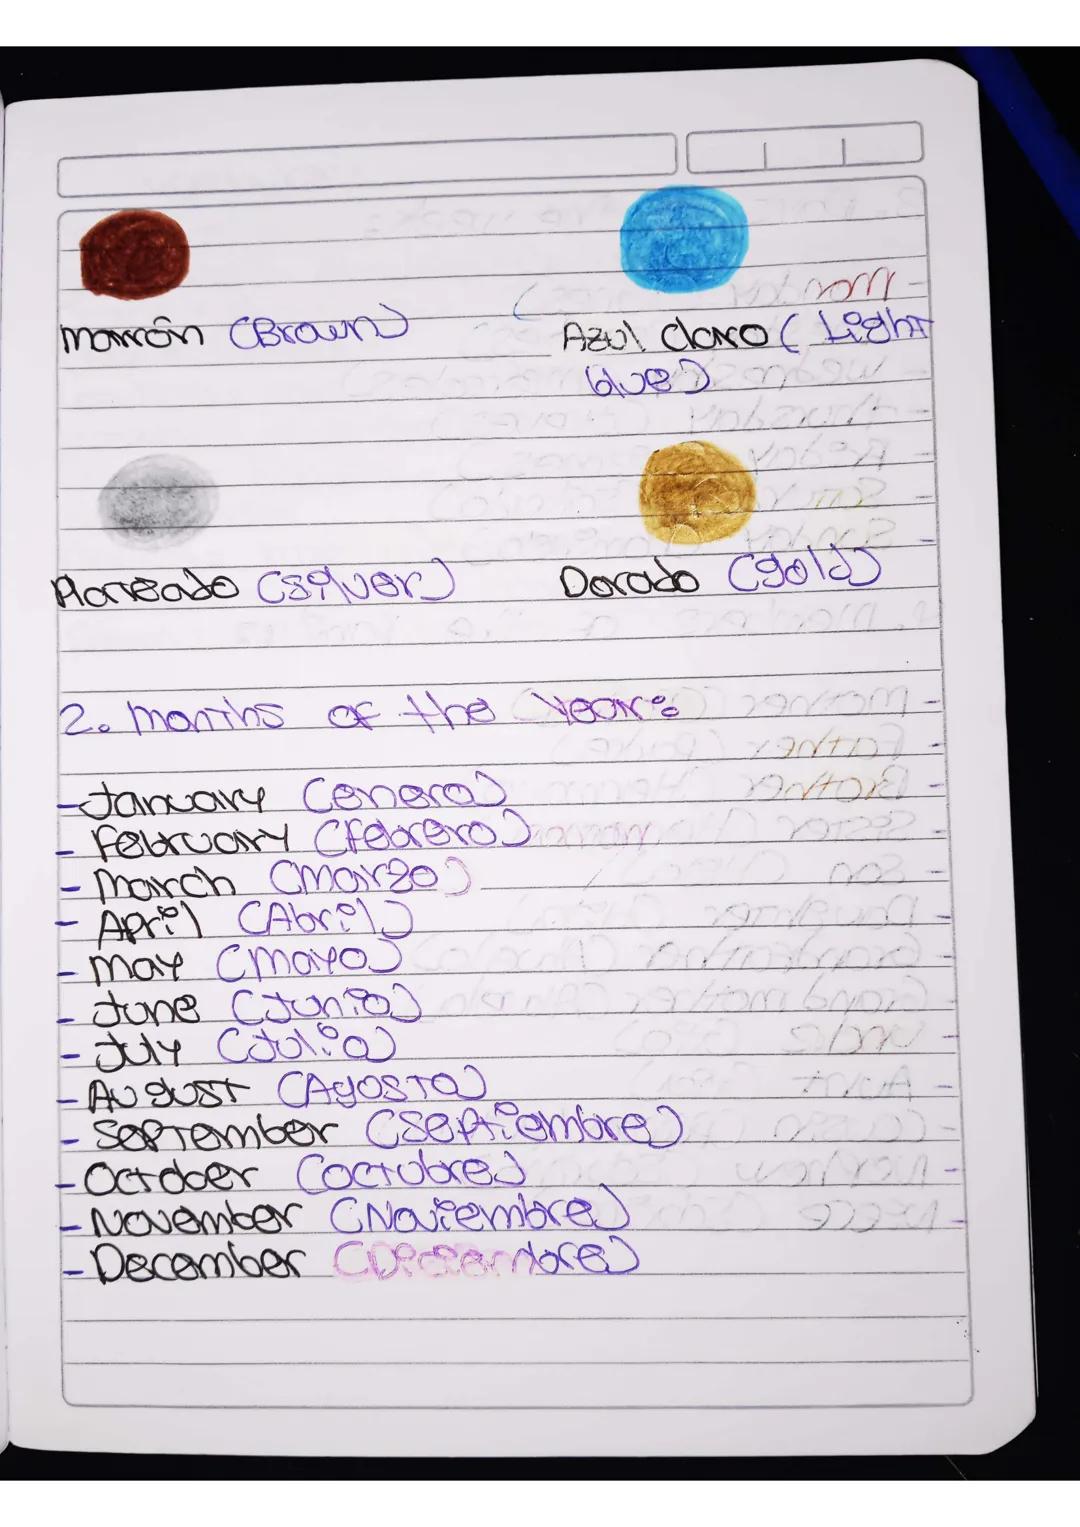 Marrón (Brown)
Azul claro (Light
blue)
Plateado (silver)
Dorado (gold)
2. Months of the Year:
- January (enero)
- February (febrero)
- March (Marzo)
- April (Abril)
- May (Mayo)
- June (Junio)
- July (Julio)
- August (Agosto)
- September (Septiembre)
- October (octubre)
- November (Noviembre)
- December (Diciembre)